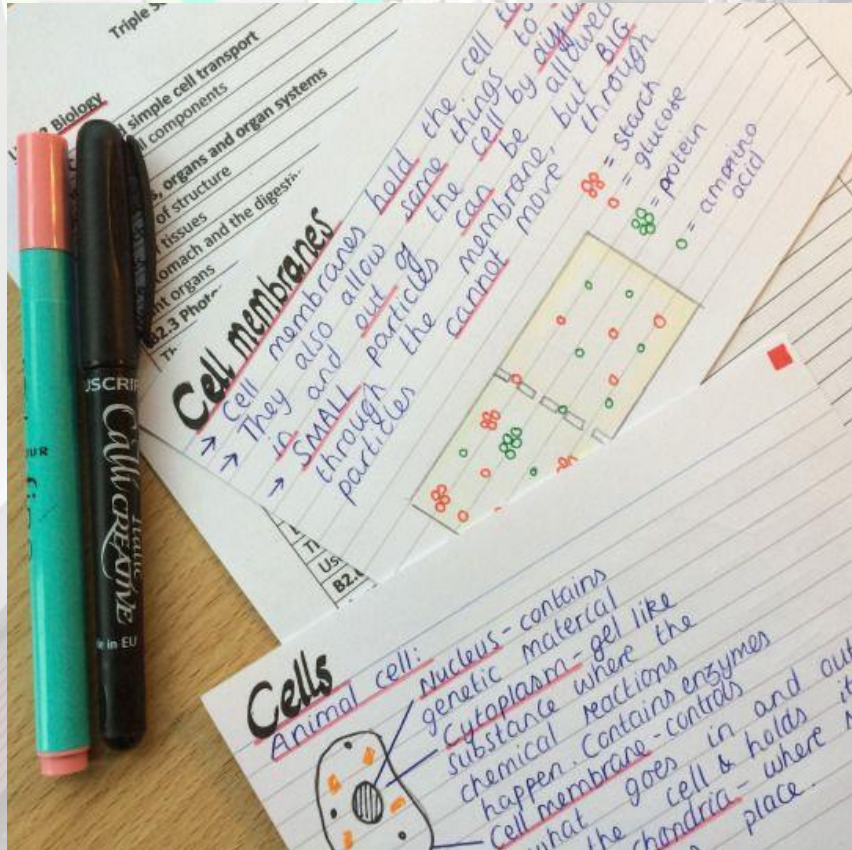 Triple
Biology
simple cell transport
components
organs and organ systems
of structure
tissues
and the
organs
B2.3
Cell membranes
→ Cell membranes hold the cell
→ They also allow some things to
in and out of the cell by
→ SMALL particles can be allowed
through the membrane, but BIG
particles cannot move through
= starch
= glucose
= protein
= amino
acid
CREATIVE
in EU
Cells
Animal cell:
Nucleus - contains
genetic material
Cytoplasm - gel like
substance where the
chemical reactions
happen. Contains enzymes
Cell membrane - controls
what goes in and out
the cell & holds it
where
place.